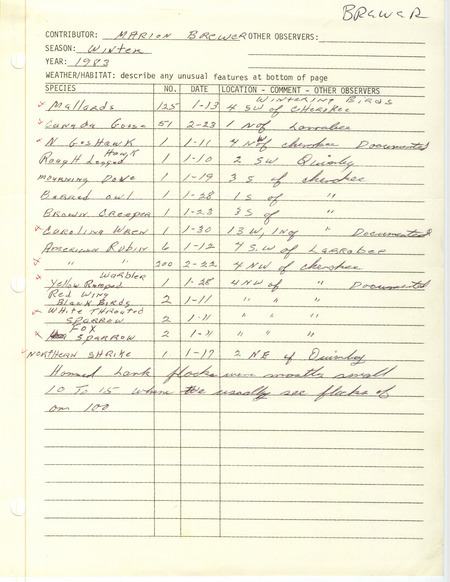 BREWER
CONTRIBUTOR: MARION BREWER OTHER OBSERVERS:
SEASON: WINTER
YEAR: 1983
WEATHER/HABITAT: describe any unusual features at bottom of page
SPECIES NO. DATE LOCATION - COMMENT - OTHER OBSERVERS
WINTERING BIRDS
x Mallards 125 1-13 4 SW of CHEROKEE
x CANADA Goose 51 2-23 1 N of Larrabee
x N GosHawk 1 1-11 4 NW of cherokee Documented
Rough Legged Hawk 1 1-10 2 SW Quimby
MOURNING DOVE 1 1-19 3 S of cherokee
Barred owl 1 1-28 1 S of "
BROWN CREEPER 1 1-23 3 S of "
x CAROLINA WREN 1 1-30 13 W, 1N of " Documented
AMERICAN ROBIN 6 1-12 7 S.W of LARRABEE
x " " 200 2-22 4 NW of cherokee
x Yellow Rumped Warbler 1 1-28 4 NW of " Documented
Red Wing
Black Birds 2 1-11 " " "
x WHITE THROATED
SPARROW 2 1-11 " " "
x FOX SPARROW 2 1-11 " " "
x NORTHERN SHRIKE 1 1-17 2 NE of Quimby
Horned Lark flocks were mostly small
10 To 15 where we usually see flocks of
100